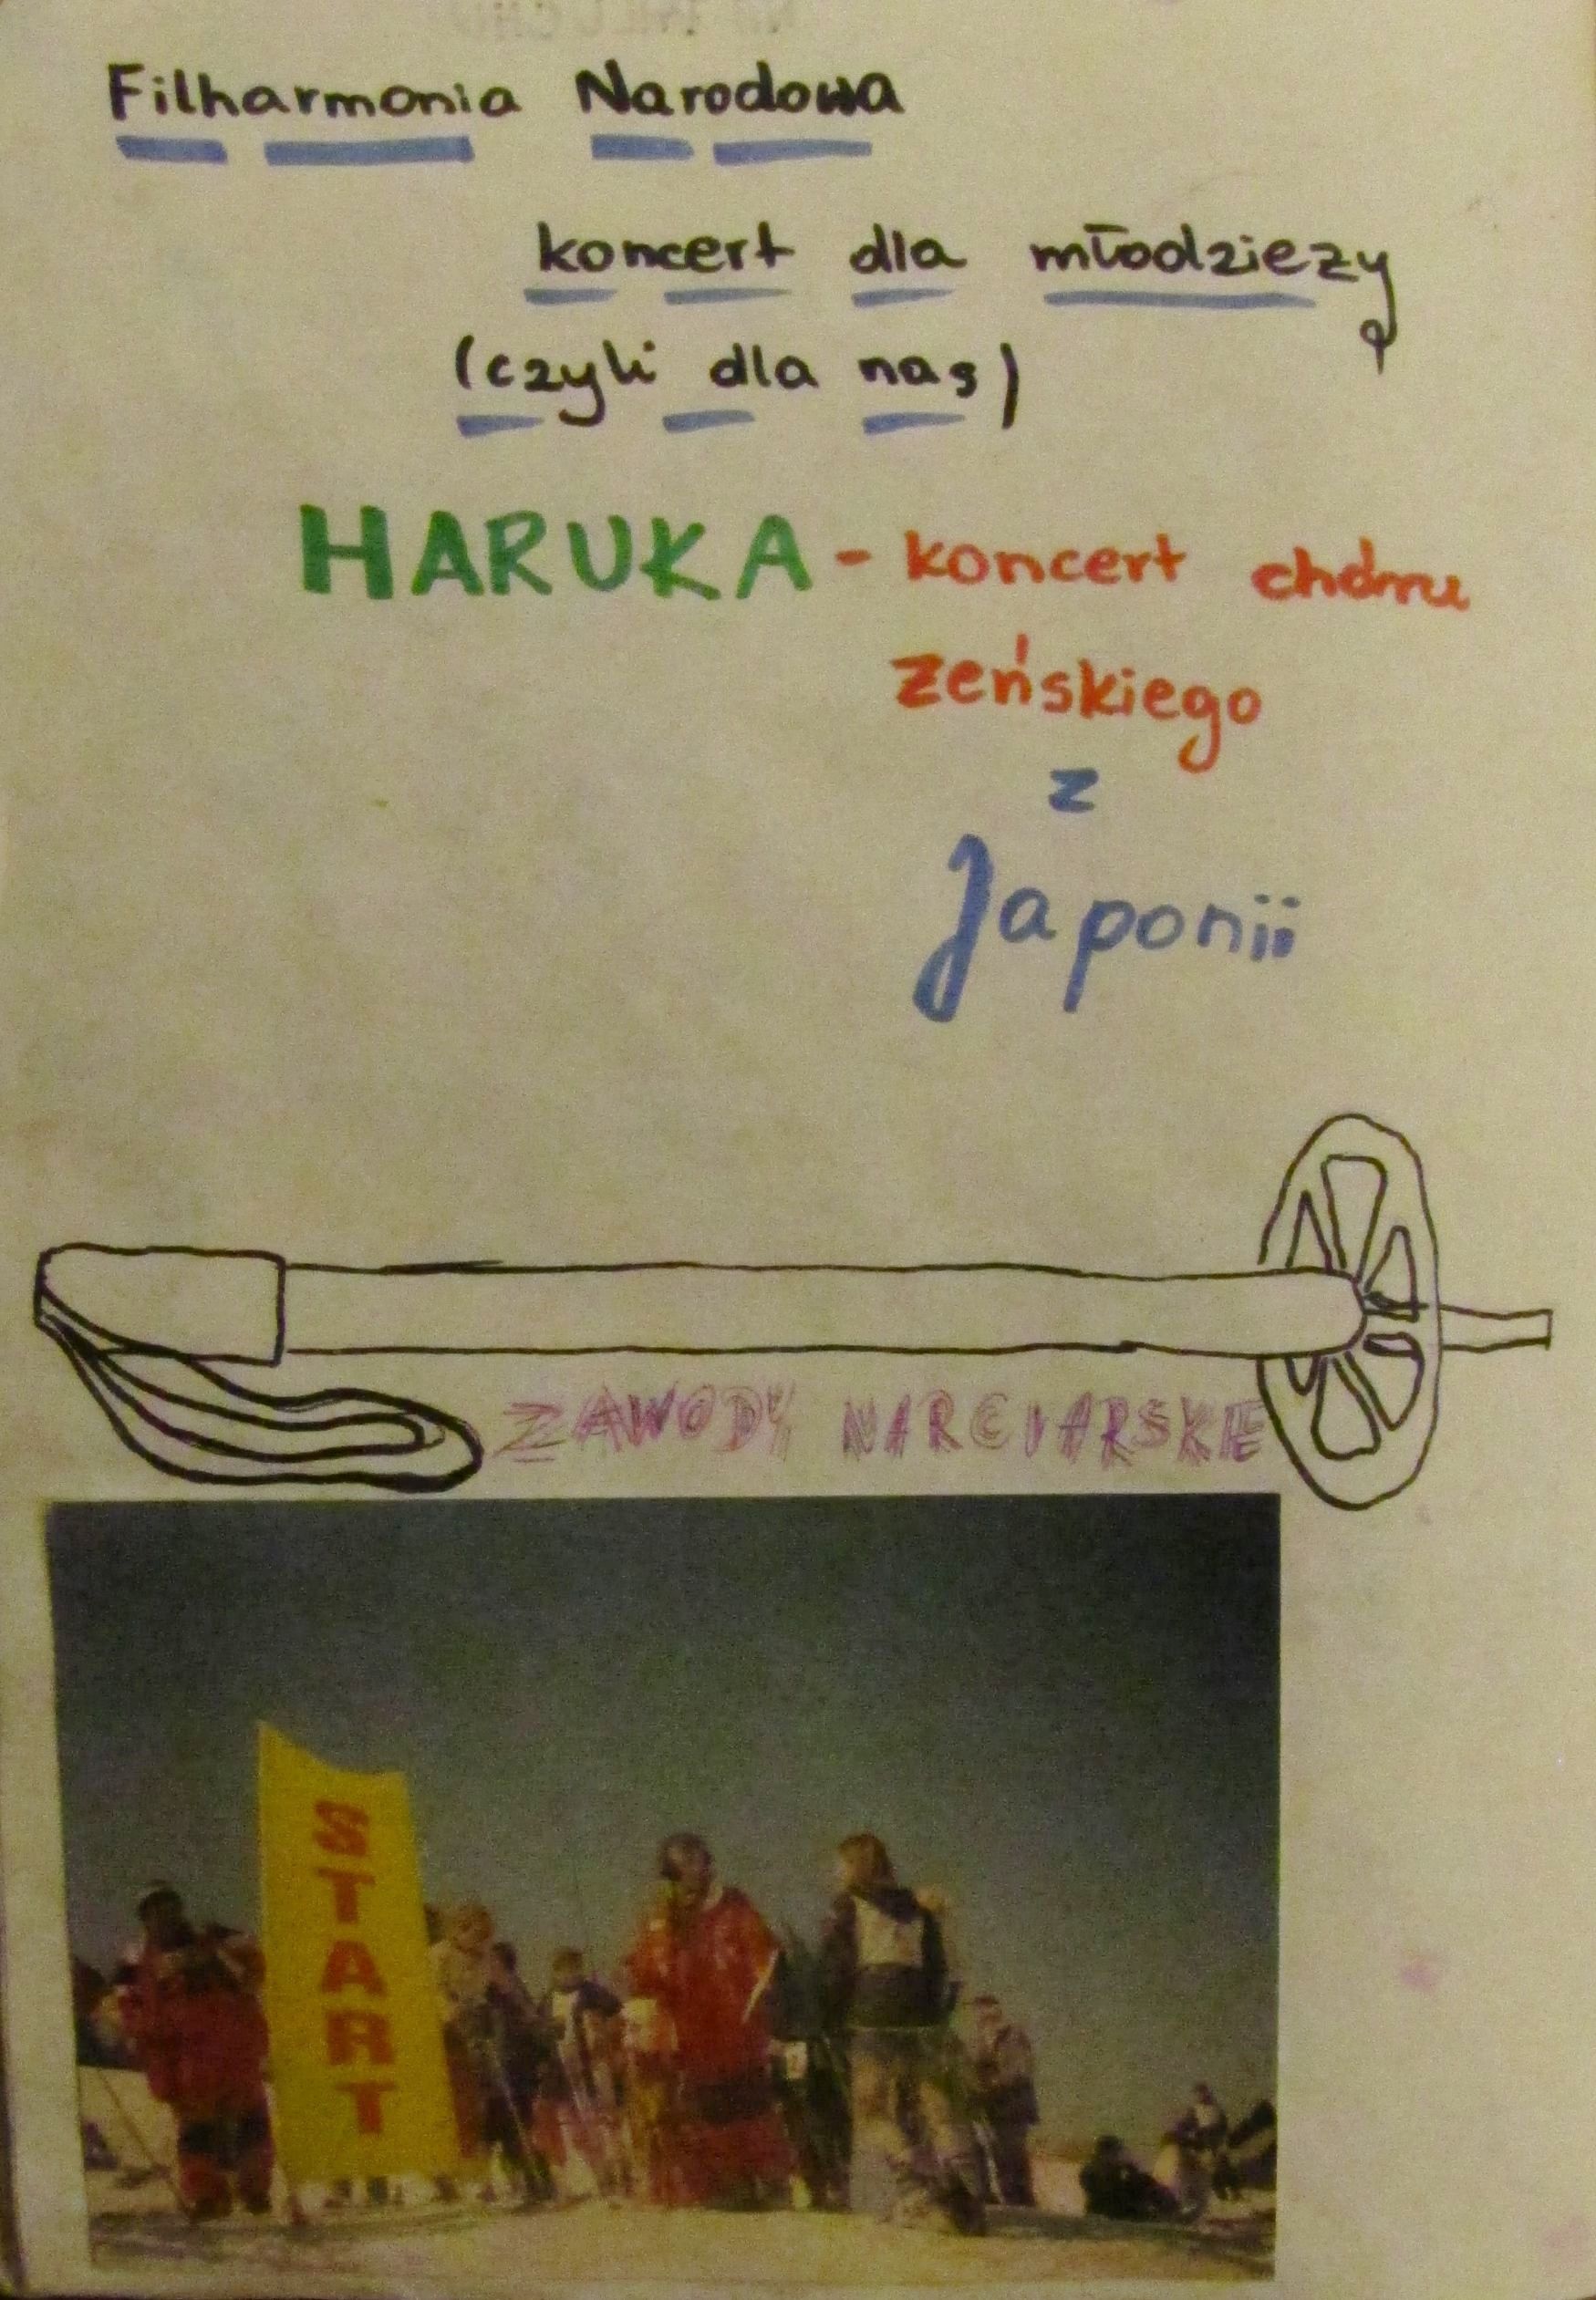 Filharmonia Narodowa
koncert dla młodzieży
(czyli dla nas)
HARUKA - koncert chóru
żeńskiego
z
Japonii
ZAWODY NARCIARSKIE
START